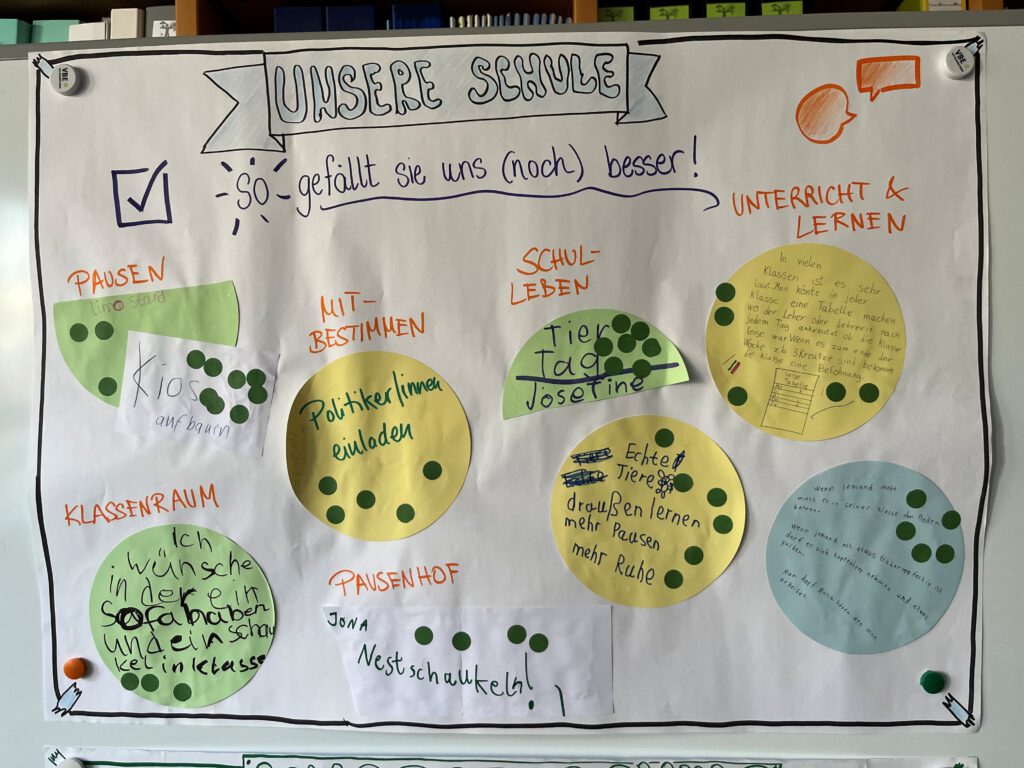 VBE
VBE
UNSERE SCHULE
SO gefällt sie uns (noch) besser!
PAUSEN
limo Stand
Kios
aufbauen
MIT-
BESTIMMEN
Politiker/innen
einladen
SCHUL-
LEBEN
Tier
Tag
Josefine
Echte
Tiere
draußen lernen
mehr Pausen
mehr Ruhe
UNTERRICHT &
LERNEN
In vielen
Klassen ist es sehr
laut. Man könte in jeder
Klasse eine Tabelle machen
wo der Leher oder Lehrerin nach
jedem Tag ankreutzt ob die Klasse
leise war. Wenn es zum ende der
Woche z.b 3 Kreutze sind bekommt
die Klasse eine Belohnung.
leise
Tabelle
wenn jemand mobt
muss er in seiner klasse den Boden
kehren.
wenn jemand mit etwas früher fertig ist
darf er sich kopfhörer nehmen und etwas
Man darf
KLASSENRAUM
Ich
wünsche
in der ein
Sofa haben
und ein Schau
kel in klasse
PAUSENHOF
JONA
Nestschaukeln!